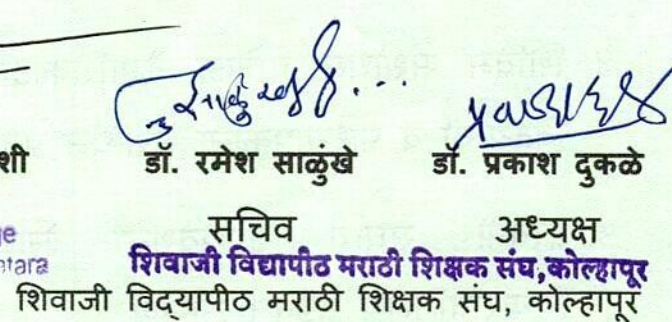 शी डॉ. रमेश साळुंखे डॉ. प्रकाश दुकळे
ge सचिव अध्यक्ष
atara शिवाजी विद्यापीठ मराठी शिक्षक संघ,कोल्हापूर
शिवाजी विद्यापीठ मराठी शिक्षक संघ, कोल्हापूर